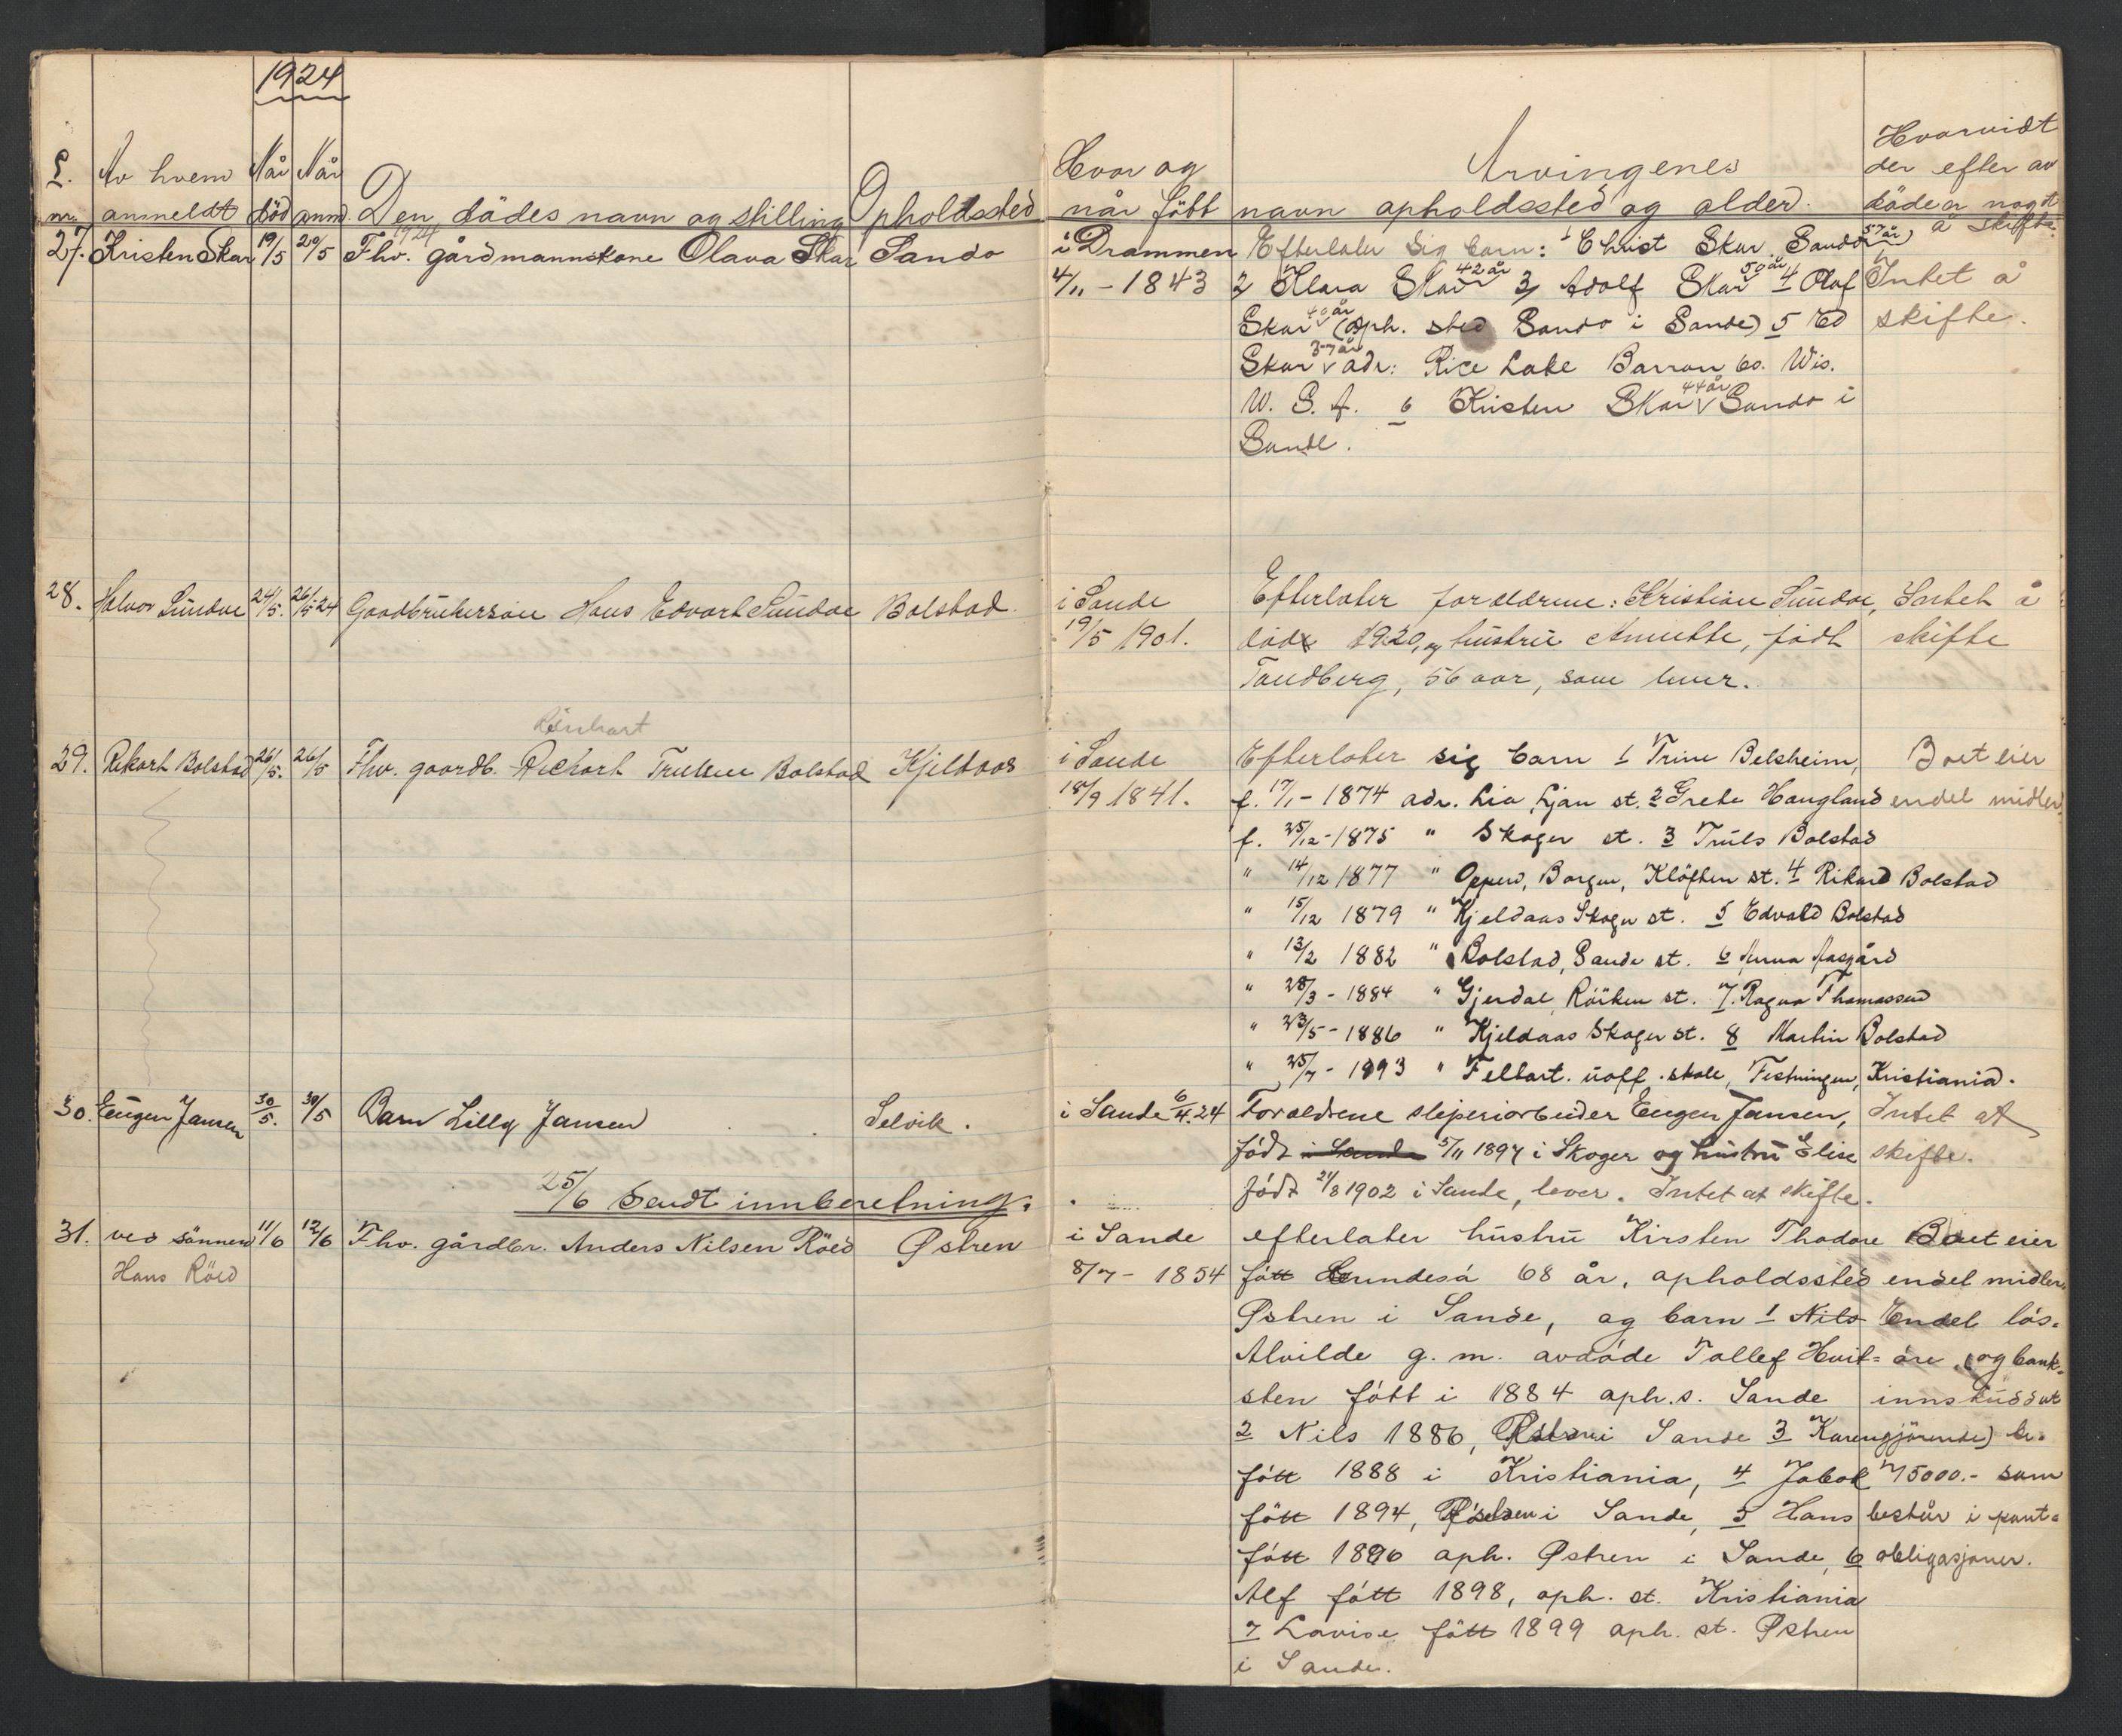 1924
L. nr. Av hvem anmeldt Når död Når anm. Den dödes navn og stilling Opholdssted Hvor og når född Arvingenes navn opholdssted og alder. Hvorvidt der efter av döde er nogot å skifte.
27. Kristen Skar 19/5 20/5 1924 Fhv. gårdmannskone Olava Skar Sando i Drammen Efterlater sig barn: 1 Christ Skar Sando 57 år)
4/11 - 1843 2 Klara Skar 42 år 3 Adolf Skar 50 år 4 Olaf Intet å
Skar 40 år (oph. sted Sando i Sande) 5 Ed skifte.
Skar 37 år adr: Rice Lake Barron Co. Wis.
U. S. A. 6 Kristen Skar 44 år Sando i
Sande.
28. Halvor Sundae 24/5. 26/5-24 Gaardbrukersøn Hans Edvart Sundae Bolstad. i Sande Efterlater foraldrene: Kristian Sundae, Intet å
19/5 1901. död 1920, og hustru Annette, födt skifte
Tandberg, 56 aar, som lever.
Reinhart
29. Rikart Bolstad 26/5. 26/5 Fhv. gaardb. Rickart Trulsen Bolstad Kjeldaas i Sande Efterlater sig barn 1 Trine Belsheim, Boet eier
18/9 1841. f. 17/1 - 1874 adr. Lia, Ljan st. 2 Grete Haugland endel midler.
f. 25/12 - 1875 " Skoger st. 3 Truls Bolstad
" 14/12 1877 " Opperd, Borgen, Klöften st. 4 Rikard Bolstad
" 15/12 1879 " Kjeldaas Skoger st. 5 Edvald Bolstad
" 13/2 1882 " Bolstad, Sande st. 6 Anna Aasgård
" 28/3 - 1884 " Gjerdal, Röiken st. 7. Ragna Thomassen
" 23/5 - 1886 " Kjeldaas Skoger st. 8 Martin Bolstad
" 25/7 - 1893 " Feltart. uoff. skole, Festningen, Kristiania.
30. Eugen Jansen 30/5. 30/5 Barn Lilly Jansen Selvik. i Sande 6/4.24 Foraldrene sliperiarbeider Eugen Jansen, Intet at
födt i Sande 5/11 1897 i Skoger og hustru Elise skifte.
25/6 Sendt innberetning. födt 21/8 1902 i Sande, lever. Intet at skifte.
31. ved sönnen 11/6 12/6 Fhv. gårdbr. Anders Nilsen Röed Østren i Sande efterlater hustru Kirsten Thodore Boet eier
Hans Röed 8/7 - 1854 fött 68 år, opholdssted endel midler.
Østren i Sande, og barn 1 Nils Endel lös-
Alvilde g. m. avdöde Tollef Hvit- öre (og bank-
sten fött i 1884 oph.s. Sande innskudd ut
2 Nils 1886, Østren i Sande 3 Karen gjörende) kr.
fött 1888 i Kristiania, 4 Jakob 15000.- som
fött 1894, Østren i Sande, 5 Hans består i pant-
fött 1896 oph. Østren i Sande, 6 obligasjoner.
Alf fött 1898, oph. st. Kristiania
7 Lovise fött 1899 oph. st. Østren
i Sande.